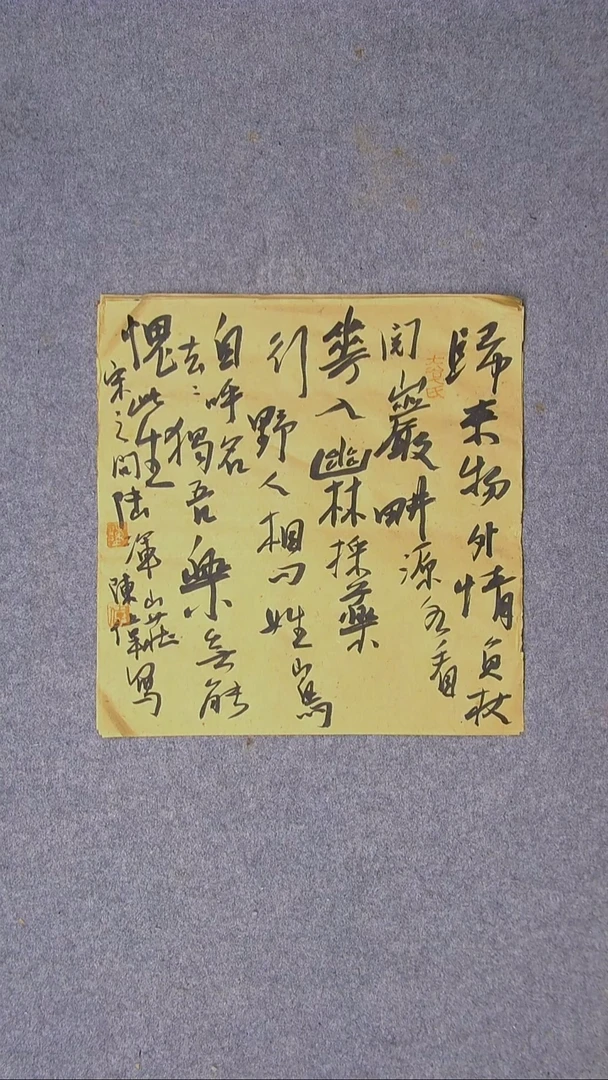 歸來物外情負杖
閱巖畊源水看
華入幽林採藥
行野人相問姓山鳥
自呼名
去〻獨吾樂無能
愧此生
宋之問陸渾山莊
陳偉寫